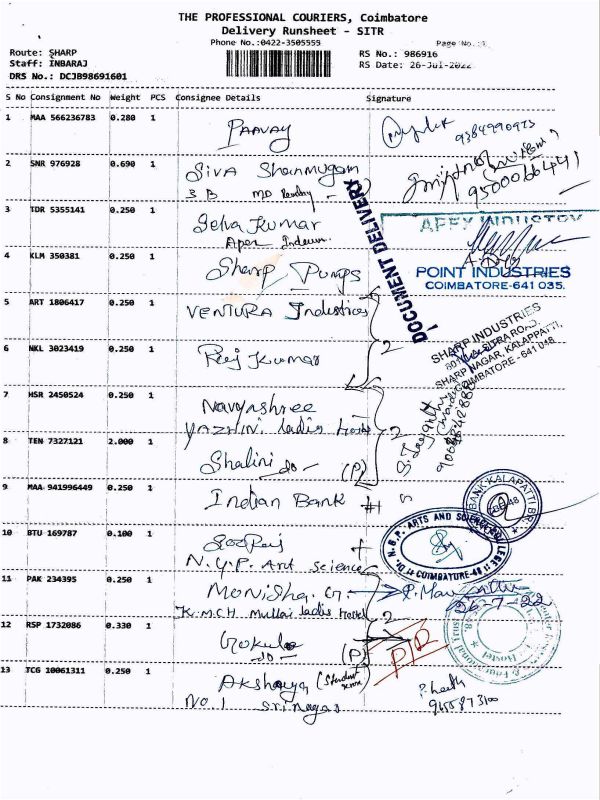 THE PROFESSIONAL COURIERS, Coimbatore
Delivery Runsheet - SITR
Phone No.:0422-3505555
Page No.:1
Route: SHARP
Staff: INBARAJ
DRS No.: DCJB98691601
RS No.: 986916
RS Date: 26-Jul-2022
S No Consignment No Weight PCS Consignee Details Signature
1 MAA 566236783 0.280 1 PAAVAY
9384990973
2 SNR 976928 0.690 1 Siva Shanmugam
3 B MD
9500066441
DOCUMENT DELIVERY
3 TDR 5355141 0.250 1 Selva Kumar
Apex
APEX INDUSTRY
4 KLM 350381 0.250 1 Sharp Pumps
POINT INDUSTRIES
COIMBATORE-641 035.
5 ART 1806417 0.250 1 VENTURA Industries
2
SHARP INDUSTRIES
SHARP NAGAR, KALAPPATTI,
COIMBATORE - 641 048.
6 NKL 3023419 0.250 1 Raj Kumar
7 HSR 2450524 0.250 1 Navyashree
YAZHINI ladis Hostel
2
8 TEN 7327121 2.000 1 Shalini
do (P)
9 MAA 941996449 0.250 1 Indian Bank #1
BANK KALAPATTI BR.
10 BTU 169787 0.100 1
N.G.P. Art science
Dr. N.G.P. ARTS AND SCIENCE COLLEGE
COIMBATORE-48
11 PAK 234395 0.250 1 Monisha. G
K.M.C.H Mullai ladis Hostel
26-7-22
12 RSP 1732086 0.330 1 Gokula
do (P)
2
P/D
13 TCG 10061311 0.250 1 Akshaya
No. 1 Sri nagar
9655873100